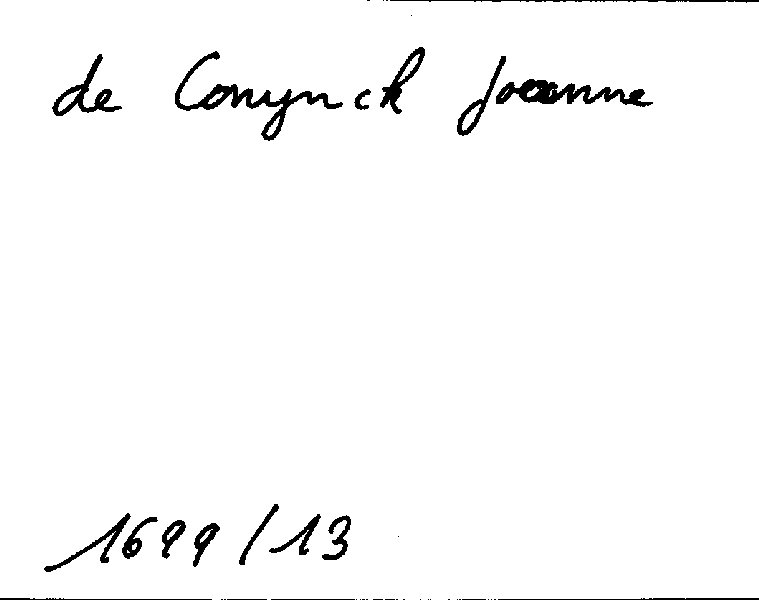 de Conynck Joanne
1699/13